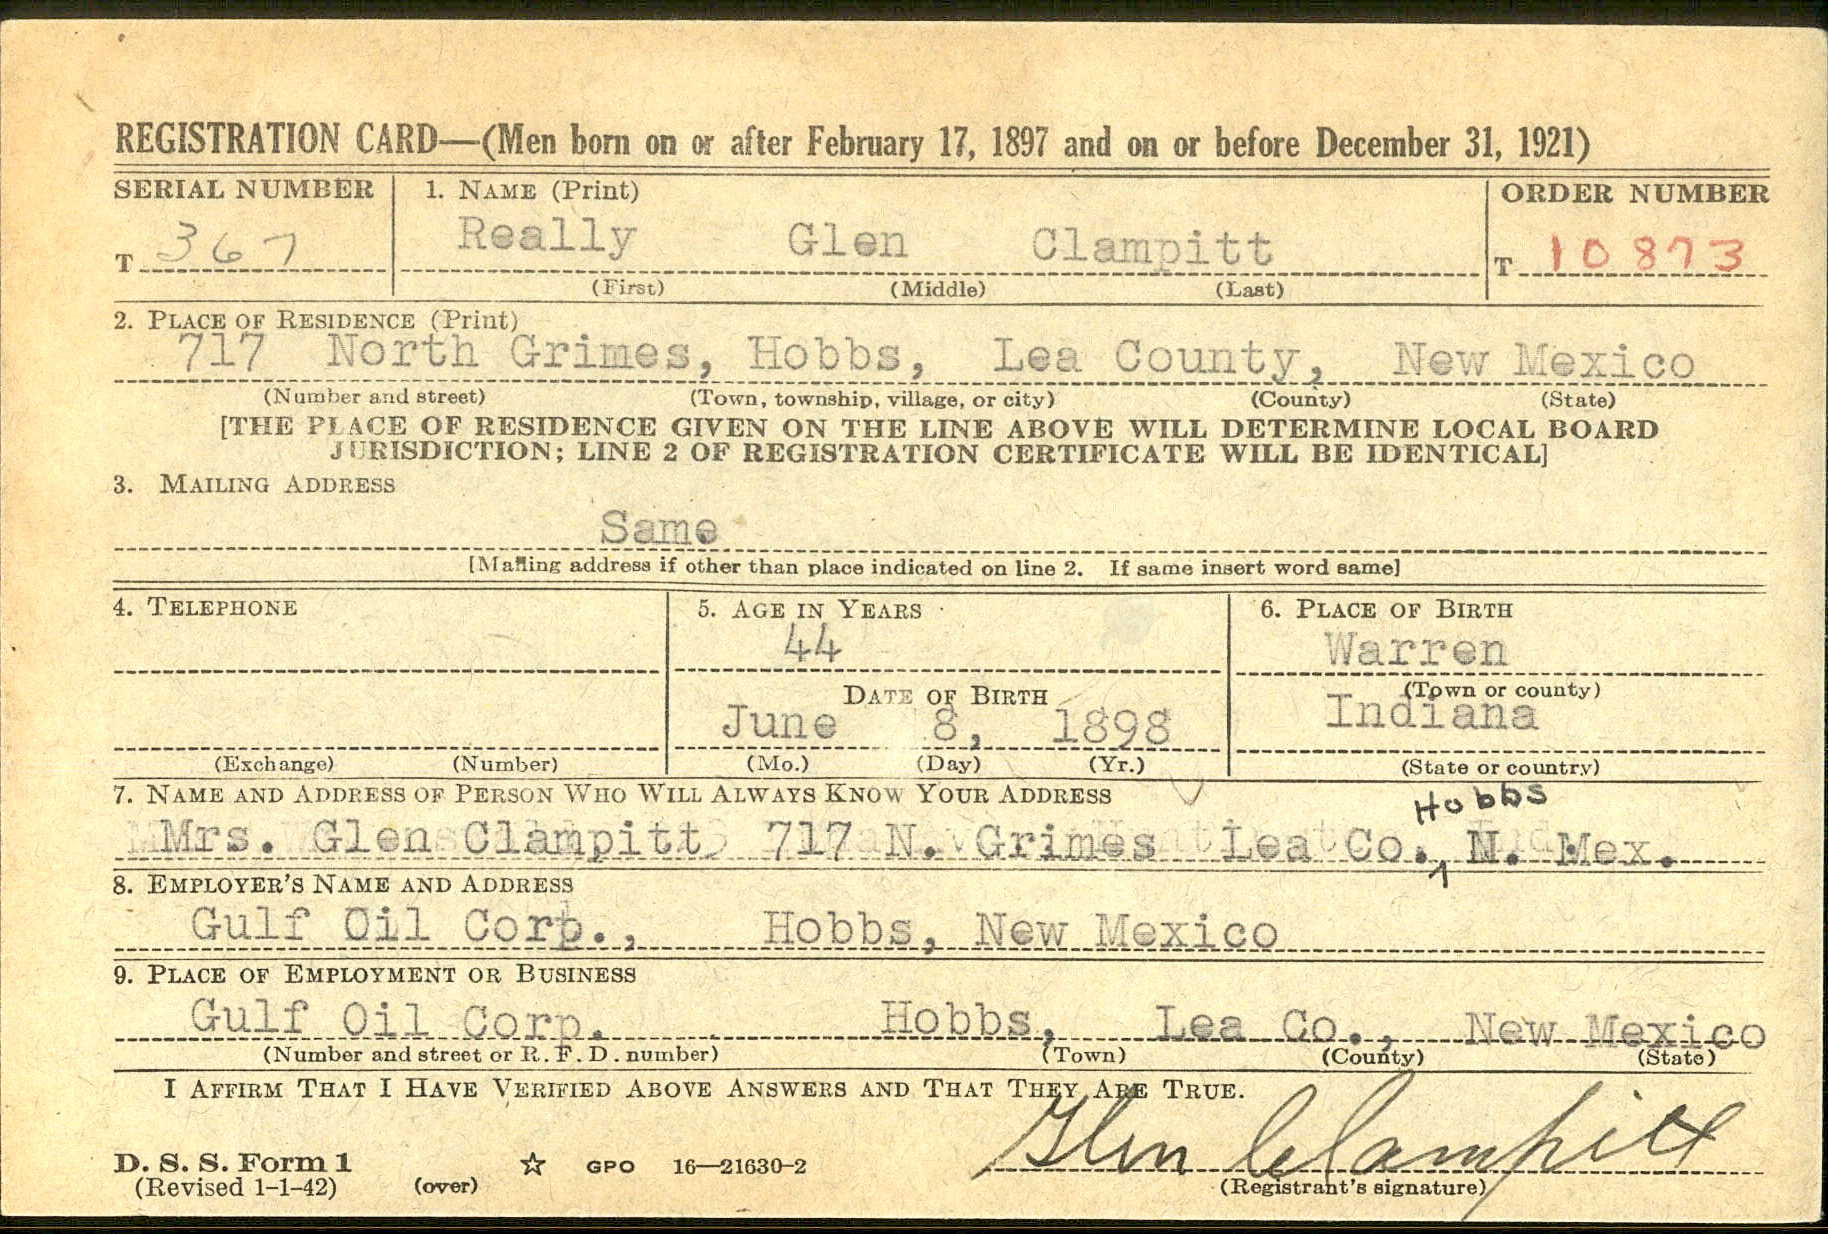 REGISTRATION CARD—(Men born on or after February 17, 1897 and on or before December 31, 1921)
SERIAL NUMBER
T 367
1. NAME (Print)
Really Glen Clampitt
(First) (Middle) (Last)
ORDER NUMBER
T 10873
2. PLACE OF RESIDENCE (Print)
717 North Grimes, Hobbs, Lea County, New Mexico
(Number and street) (Town, township, village, or city) (County) (State)
[THE PLACE OF RESIDENCE GIVEN ON THE LINE ABOVE WILL DETERMINE LOCAL BOARD
JURISDICTION; LINE 2 OF REGISTRATION CERTIFICATE WILL BE IDENTICAL]
3. MAILING ADDRESS
Same
[Mailing address if other than place indicated on line 2. If same insert word same]
4. TELEPHONE
(Exchange) (Number)
5. AGE IN YEARS
44
DATE OF BIRTH
June 8, 1898
(Mo.) (Day) (Yr.)
6. PLACE OF BIRTH
Warren
(Town or county)
Indiana
(State or country)
7. NAME AND ADDRESS OF PERSON WHO WILL ALWAYS KNOW YOUR ADDRESS
Hobbs
Mrs. Glen Clampitt 717 N. Grimes Lea Co. N. Mex.
8. EMPLOYER'S NAME AND ADDRESS
Gulf Oil Corp., Hobbs, New Mexico
9. PLACE OF EMPLOYMENT OR BUSINESS
Gulf Oil Corp. Hobbs, Lea Co., New Mexico
(Number and street or R. F. D. number) (Town) (County) (State)
I AFFIRM THAT I HAVE VERIFIED ABOVE ANSWERS AND THAT THEY ARE TRUE.
Glen Clampitt
D. S. S. Form 1
(Revised 1-1-42) (over) ☆ GPO 16—21630-2
(Registrant's signature)